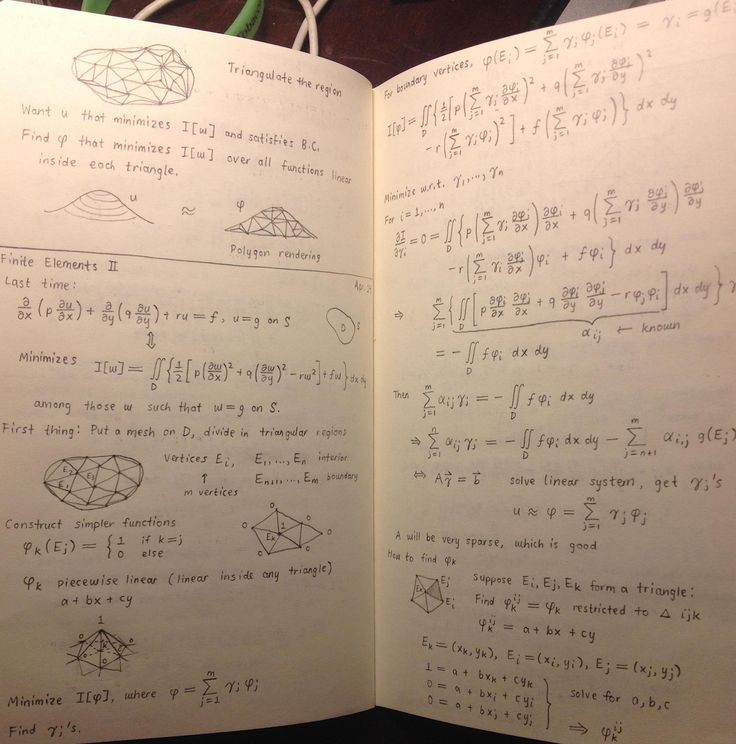 Triangulate the region
Want u that minimizes I[w] and satisfies B.C.
Find φ that minimizes I[w] over all functions linear
inside each triangle.
u ≈ φ
Polygon rendering
Finite Elements II
Last time:
∂/∂x (p ∂u/∂x) + ∂/∂y (q ∂u/∂y) + ru = f, u = g on S
D S
⇕
Minimizes I[w] = ∬_D {1/2 [p(∂w/∂x)² + q(∂w/∂y)² − rw²] + fw} dx dy
among those w such that w = g on S.
First thing: Put a mesh on D, divide in triangular regions
E₂ E₃ E₁
vertices Eᵢ, E₁, ..., Eₙ interior
↑ Eₙ₊₁, ..., Eₘ boundary
m vertices
Construct simpler functions
φₖ(Eⱼ) = { 1 if k=j
0 else
0 1 0 Eₖ 0 0 0
φₖ piecewise linear (linear inside any triangle)
a + bx + cy
1
0 0 0 0 k 0
Minimize I[φ], where φ = Σ_{j=1}^m γⱼ φⱼ
Find γⱼ's.
For boundary vertices, φ(Eᵢ) = Σ_{j=1}^m γⱼ φⱼ(Eᵢ) = γᵢ = g(E
I[φ] = ∬_D {1/2 [p(Σ_{j=1}^m γⱼ ∂φⱼ/∂x)² + q(Σ_{j=1}^m γⱼ ∂φⱼ/∂y)²
− r(Σ_{j=1}^m γⱼ φⱼ)²] + f(Σ_{j=1}^m γⱼ φⱼ)} dx dy
Minimize w.r.t. γ₁, ..., γₙ
For i = 1, ..., n
∂I/∂γᵢ = 0 = ∬_D {p(Σ_{j=1}^m γⱼ ∂φⱼ/∂x) ∂φᵢ/∂x + q(Σ_{j=1}^m γⱼ ∂φⱼ/∂y) ∂φᵢ/∂y
− r(Σ_{j=1}^m γⱼ ∂φⱼ/∂x) φᵢ + fφᵢ} dx dy
⇒ Σ_{j=1}^m {∬_D [p ∂φⱼ/∂x ∂φᵢ/∂x + q ∂φⱼ/∂y ∂φᵢ/∂y − rφⱼφᵢ] dx dy}
αᵢⱼ ← known
= − ∬_D fφᵢ dx dy
Then Σ_{j=1}^m αᵢⱼ γⱼ = − ∬_D fφᵢ dx dy
⇒ Σ_{j=1}^n αᵢⱼ γⱼ = − ∬_D fφᵢ dx dy − Σ_{j=n+1}^m αᵢ,ⱼ g(Eⱼ
⇔ Aγ⃗ = b⃗ solve linear system, get γⱼ's
u ≈ φ = Σ_{j=1}^m γⱼ φⱼ
A will be very sparse, which is good
How to find φₖ
Eₖ Eⱼ Eᵢ
suppose Eᵢ, Eⱼ, Eₖ form a triangle:
Find φₖ^{ij} = φₖ restricted to Δ ijk
φₖ^{ij} = a + bx + cy
Eₖ = (xₖ, yₖ), Eᵢ = (xᵢ, yᵢ), Eⱼ = (xⱼ, yⱼ)
1 = a + bxₖ + cyₖ
0 = a + bxᵢ + cyᵢ
0 = a + bxⱼ + cyⱼ
} solve for a, b, c
⇒ φₖ^{ij}